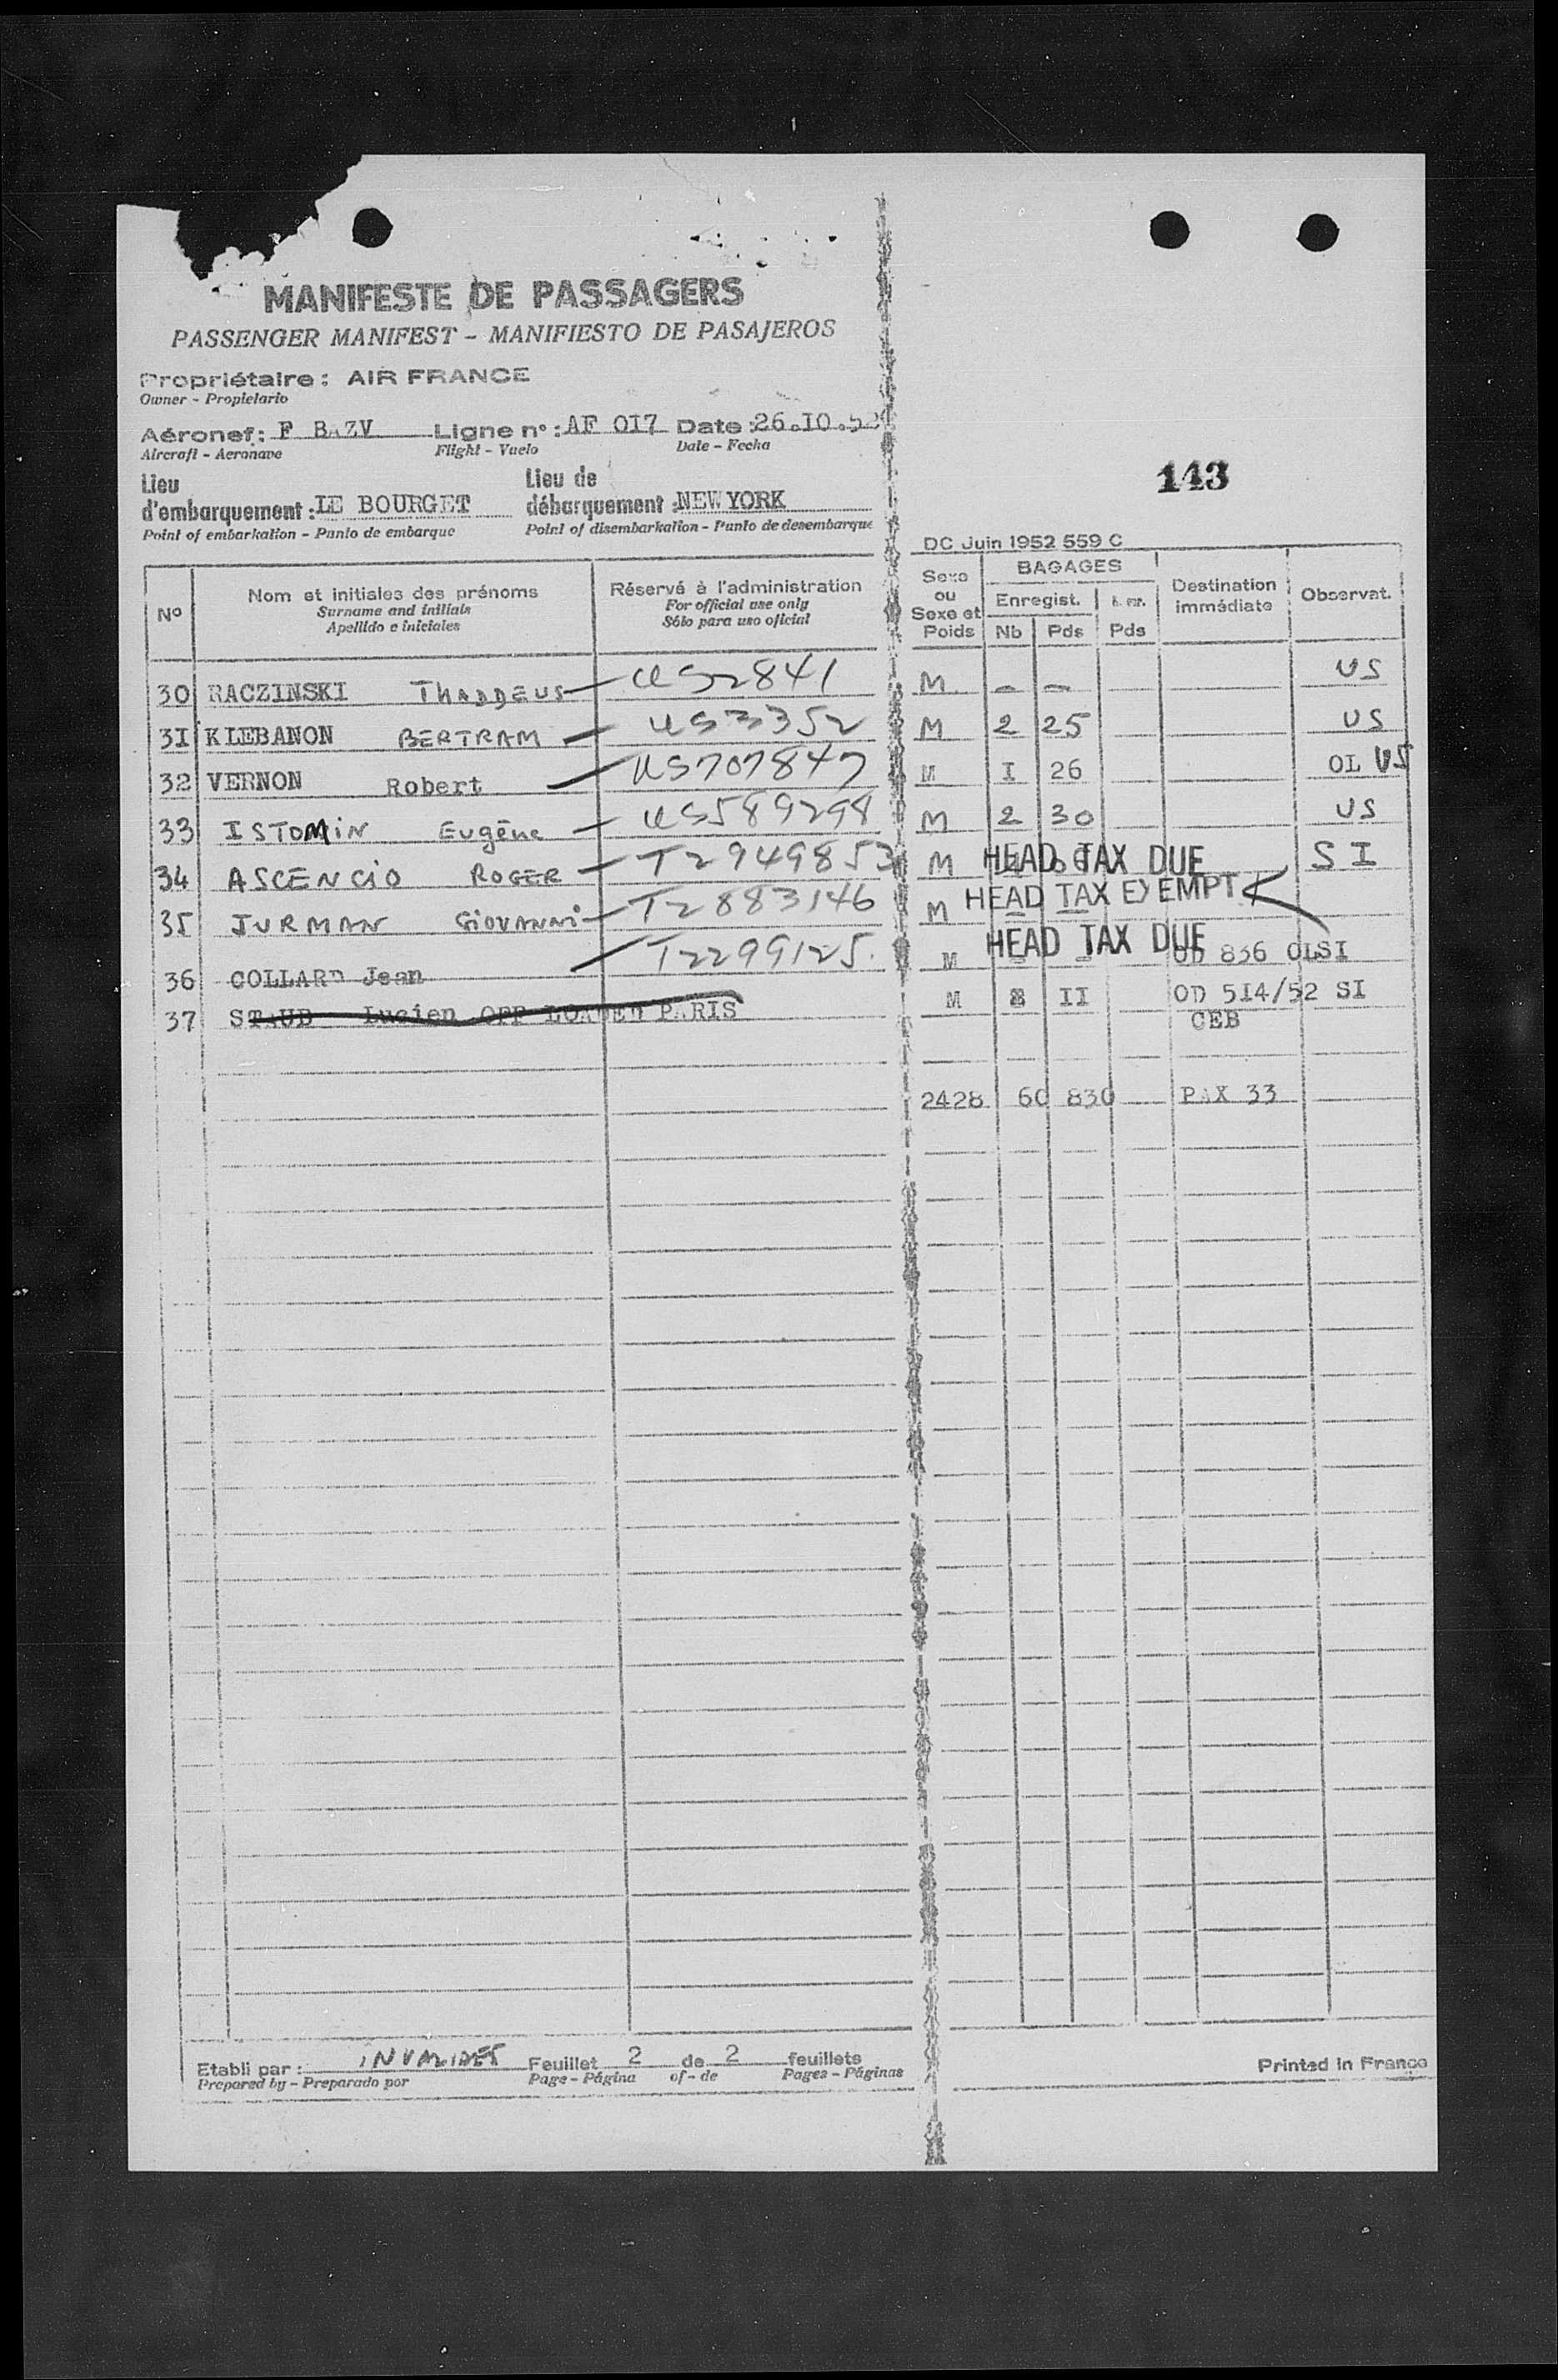 MANIFESTE DE PASSAGERS
PASSENGER MANIFEST - MANIFIESTO DE PASAJEROS
Propriétaire : AIR FRANCE
Owner - Propietario
Aéronef : F BAZV Ligne n° : AF OI7 Date : 26.IO.52
Aircraft - Aeronave Flight - Vuelo Date - Fecha
143
Lieu d'embarquement : LE BOURGET Lieu de débarquement : NEW YORK
Point of embarkation - Punto de embarque Point of disembarkation - Punto de desembarque
DC Juin 1952 559 C
N° Nom et initiales des prénoms Réservé à l'administration Sexe ou Sexe et Poids BAGAGES Enregist. Nb Pds Pds Destination immédiate Observat.
Surname and initials For official use only
Apellido e iniciales Sólo para uso oficial
30 RACZINSKI THADDEUS US2841 M - - US
3I KLEBANON BERTRAM US3352 M 2 25 US
32 VERNON Robert US707847 M I 26 OL US
33 ISTOMIN Eugène US589298 M 2 30 US
34 ASCENCIO ROGER T2949853 M HEAD TAX DUE SI
35 JURMAN GIOVANNI T2883146 M HEAD TAX EXEMPT
36 COLLARD Jean T2299125. M HEAD TAX DUE OD 836 OLSI
37 STAUB Lucien OFF LOADED PARIS M II OD 5I4/52 SI
CEB
2428 60 830 PAX 33
Etabli par : INVALIDES Feuillet 2 de 2 feuillets
Prepared by - Preparado por Page - Página of - de Pages - Páginas
Printed in France